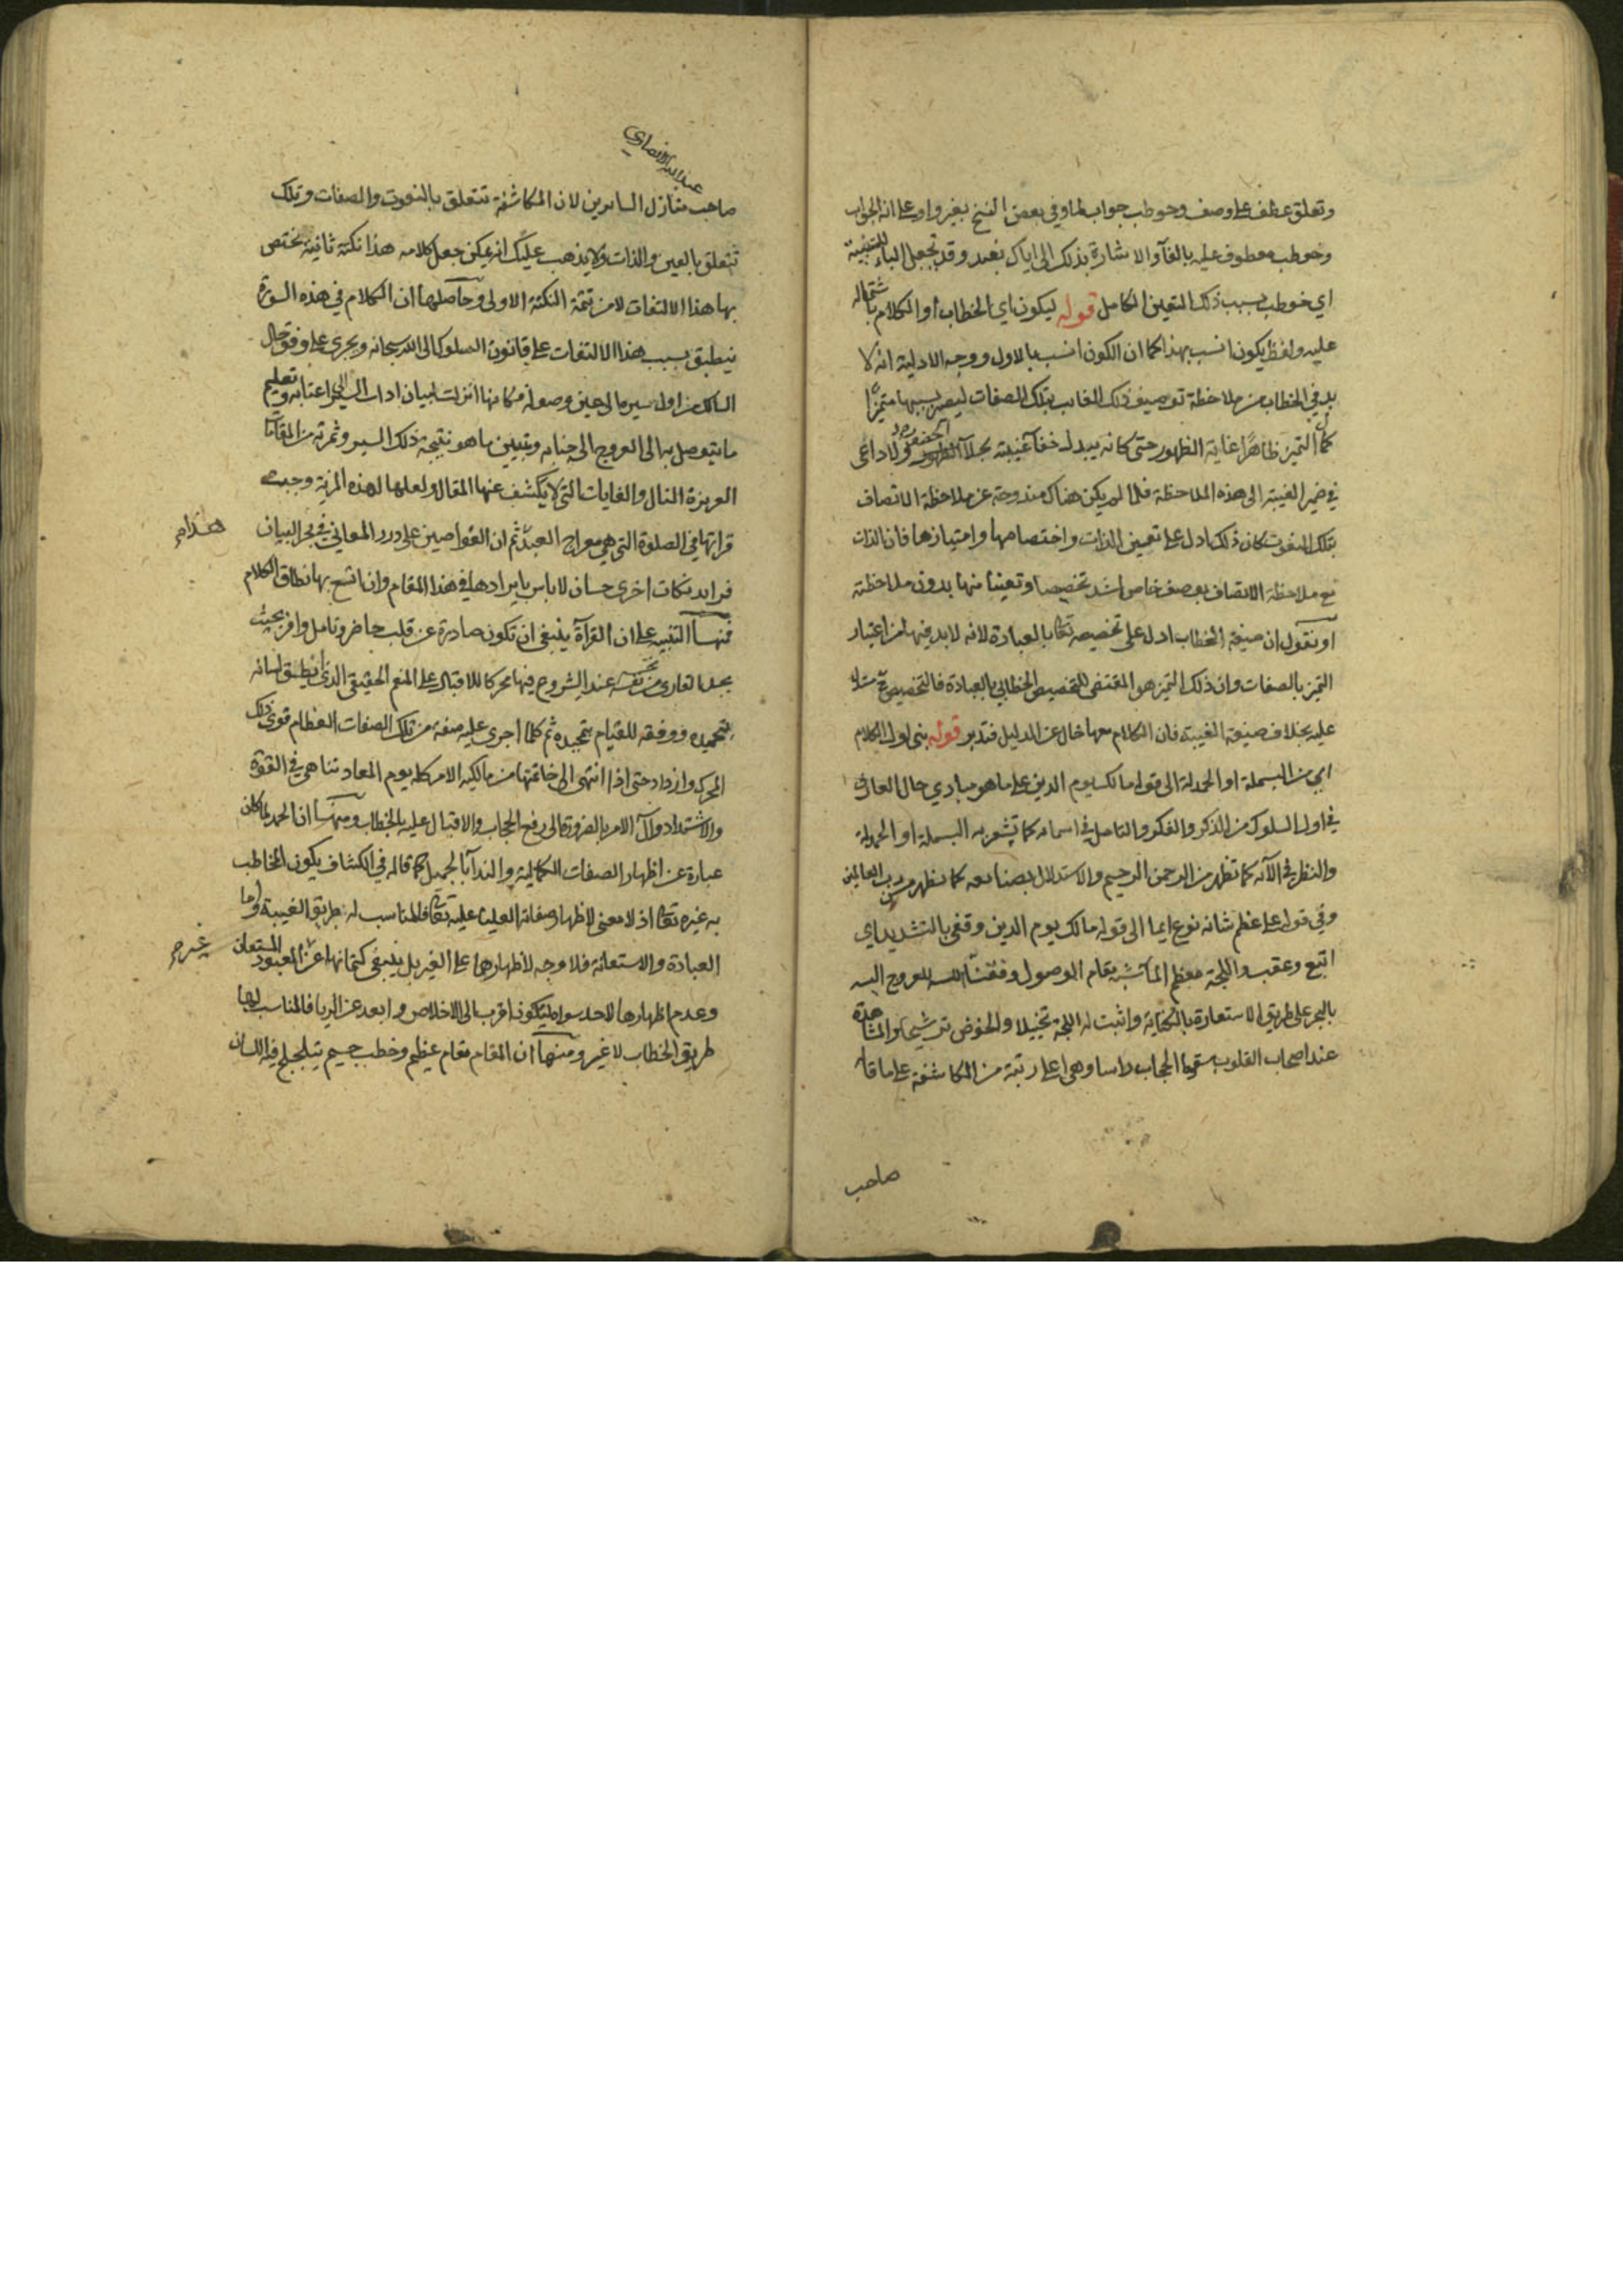 وتعلق عطف على وصف وخوطب جواب لما وفي بعض النسخ بغير واو على انه الجواب
وخوطب معطوف عليه بالفآ والاشارة بذلك الى اياك نعبد وقد تجعل الباء للسببية
اي خوطب بسبب ذلك التعين الكامل قوله ليكون اي الخطاب او الكلام باشتماله
عليه ولفظ يكون انسب بهذا كما ان الكون انسب بالاول ووجه الادلية انه لا
بد في الخطاب من ملاحظة توصيف ذلك الغايب بتلك الصفات ليصير بسببها متميزا
كمال التميز ظاهرا غاية الظهور حتى كانه يبدل خفآ غيبته بجلآ الحضور ولا داعى
في ضمير الغيبة الى هذه الملاحظة فلما لم يكن هناك مندوحة عن ملاحظة الاتصاف
بتلك النعوت كان ذلك ادل على تعيين الذات واختصاصها وامتيازها فان الذات
مع ملاحظة الاتصاف بوصف خاص اشد تخصيصا وتعينا منها بدون ملاحظته
او نقول ان صيغة الخطاب ادل على تخصيصه تعالى بالعبادة لانه لابد فيها من اعتبار
التميز بالصفات وان ذلك التميز هو المقتضى للتخصيص الخطابي بالعبادة فالتخصيص
عليه بخلاف صيغة الغيبة فان الكلام معها خال عن الدليل فتدبر قوله بنى اول الكلام
اي من البسملة او الحمدلة الى قوله مالك يوم الدين على ما هو مبادي حال العارف
في اول السلوك من الذكر والفكر والتامل في اسمائه كما تشعر به البسملة او الحمدلة
والنظر في آلائه كما تظهر من الرحمن الرحيم والاستدلال بصنايعه كما يظهر من رب العالمين
وفي قوله على عظم شانه نوع ايما الى قوله مالك يوم الدين وقفى بالتشديد اي
اتبع وعقب واللجة معظم المآ شبه مقام الوصول وفقنا الله للعروج اليه
بالبحر على طريق الاستعارة بالكناية واثبت له اللجة تخييلا والخوض ترشيحا والمشاهدة
عند اصحاب القلوب سقوط الحجاب راسا وهي اعلى رتبة من المكاشفة على ما قاله
صاحب
عبد الله الانصاري
صاحب منازل السايرين لان المكاشفة تتعلق بالنعوت والصفات وتلك
تتعلق بالعين والذات ولا يذهب عليك انه يمكن جعل كلامه هذا نكتة ثانية يختص
بها هذا الالتفات لا من تتمة النكتة الاولى وحاصلها ان الكلام في هذه السورة
ينطبق بسبب هذا الالتفات على قانون السلوك الى الله سبحانه ويجرى على وفق حال
السالك من اول سيره الى حين وصوله فكانها انزلت لبيان اداب السير الى اعتابه وتعليم
ما يتوصل به الى العروج الى جنابه وتبيين ما هو نتيجة ذلك السير وثمرته من المقامات
العزيزة المنال والغايات التي لا يكشف عنها المقال ولعلها لهذه المزية وجبت
قراتها في الصلوة التي هي معراج العبد ثم ان الغواصين على درر المعاني في بحر البيان
هذا م
فرايد نكات اخرى حسان لا باس بايرادها في هذا المقام وان اتسع بها نطاق الكلام
فمنها التنبيه على ان القرآة ينبغي ان تكون صادرة عن قلب حاضر وتامل وافر بحيث
يجد القارى من نفسه عند الشروع فيها محركا للاقبال على المنعم الحقيقي الذي انطق لسانه
بتحميده ووفقه للقيام بتمجيده ثم كلما اجرى عليه صفة من تلك الصفات العظام قوى ذلك
المحرك وازداد حتى اذا انتهى الى خاتمتها من مالكيه الامر كله يوم المعاد تناهى في القوة
والاشتداد وآل الامر بالضرورة الى رفع الحجاب والاقبال عليه بالخطاب ومنها ان الحمد لما كان
عبارة عن اظهار الصفات الكمالية والندآ بالجميل كما قاله في الكشاف يكون المخاطب
به غيره تعالى اذ لا معنى لاظهار صفاته العليا عليه تعالى فالمناسب له طريق الغيبة واما
العبادة والاستعانة فلا وجه لاظهارها على الغير بل ينبغي كتمانها عن المعبود المستعان
غير م
وعدم اظهارها لاحد سواه ليكون اقرب الى الاخلاص وابعد عن الريا فالمناسب لها
طريق الخطاب لا غير ومنها ان المقام مقام عظيم وخطب جسيم يتلجلج فيه اللسان